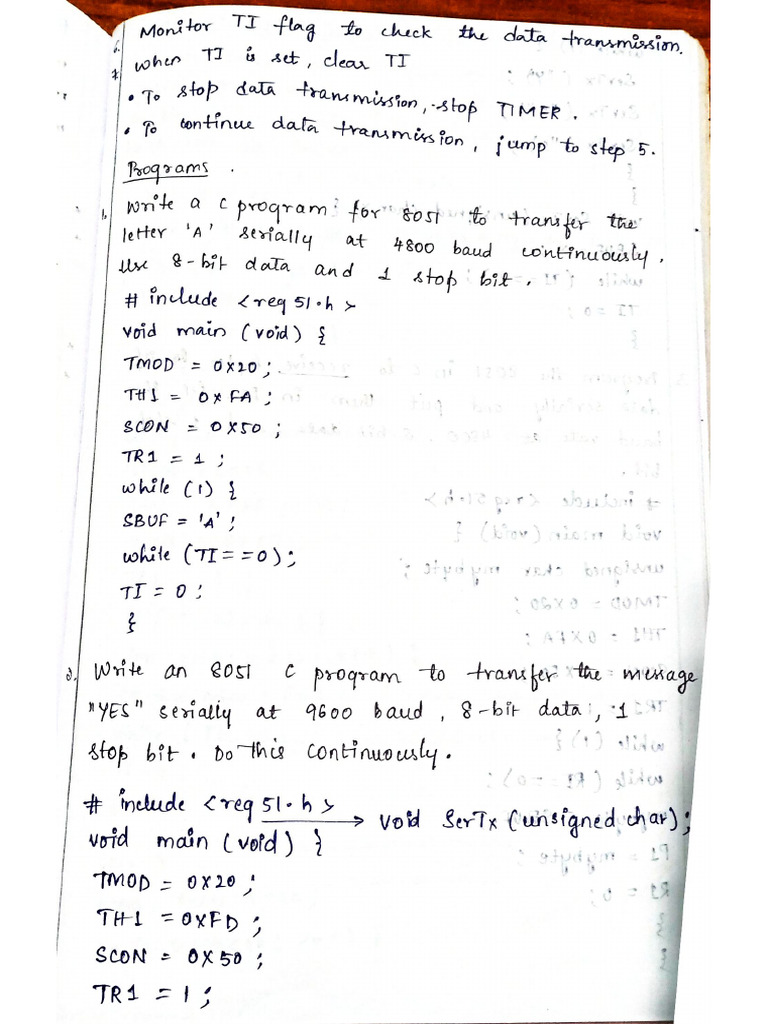 6. Monitor TI flag to check the data transmission.
7. when TI is set, clear TI
• To stop data transmission, stop TIMER.
• To continue data transmission, jump to step 5.
Programs.
1. Write a C program for 8051 to transfer the
letter 'A' serially at 4800 baud continuously.
Use 8-bit data and 1 stop bit.
# include <reg 51.h>
void main (void) {
TMOD = 0X20;
TH1 = 0XFA;
SCON = 0X50;
TR1 = 1;
while (1) {
SBUF = 'A';
while (TI==0);
TI = 0;
}
2. Write an 8051 C program to transfer the message
"YES" serially at 9600 baud, 8-bit data, 1
stop bit. Do this continuously.
# include <reg 51.h> → void SerTx (unsigned char);
void main (void) {
TMOD = 0X20;
TH1 = 0XFD;
SCON = 0X50;
TR1 = 1;